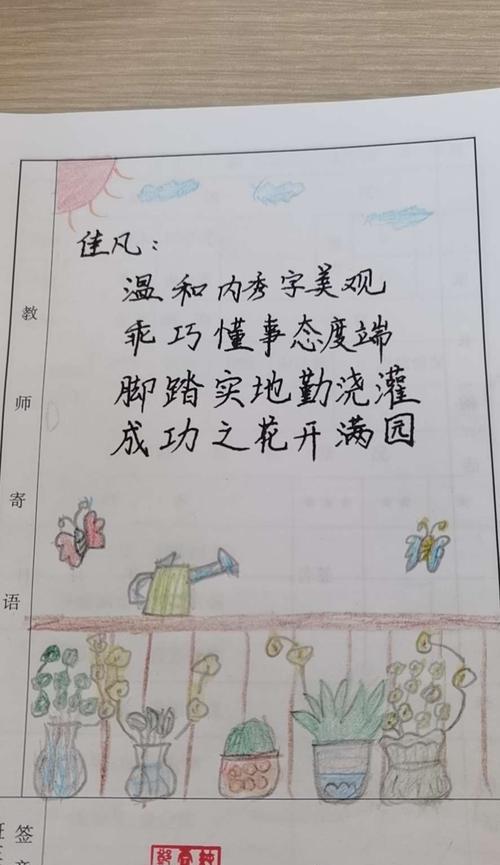 佳凡：
温和内秀字美观
乖巧懂事态度端
脚踏实地勤浇灌
成功之花开满园
教师寄语
签